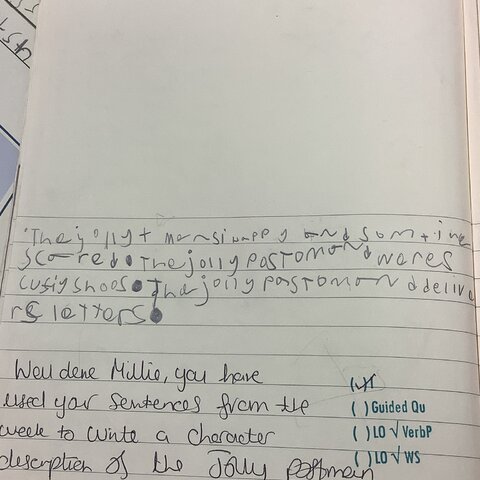 The jolly t man is happy and somtime
scared. The jolly Postman d wares
cusig shoos. The jolly Postman d delive
rs letters.
Well done Millie, you have
used your sentences from the
week to write a character
description of the Jolly postman
( ) Guided Qu
( ) LO √ VerbP
( ) LO √ WS